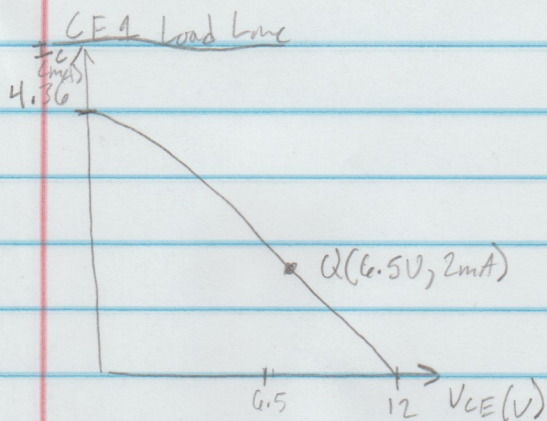 CE1 Load Line
Ic
(mA)
4.36
Q(6.5V, 2mA)
6.5
12
VCE(V)